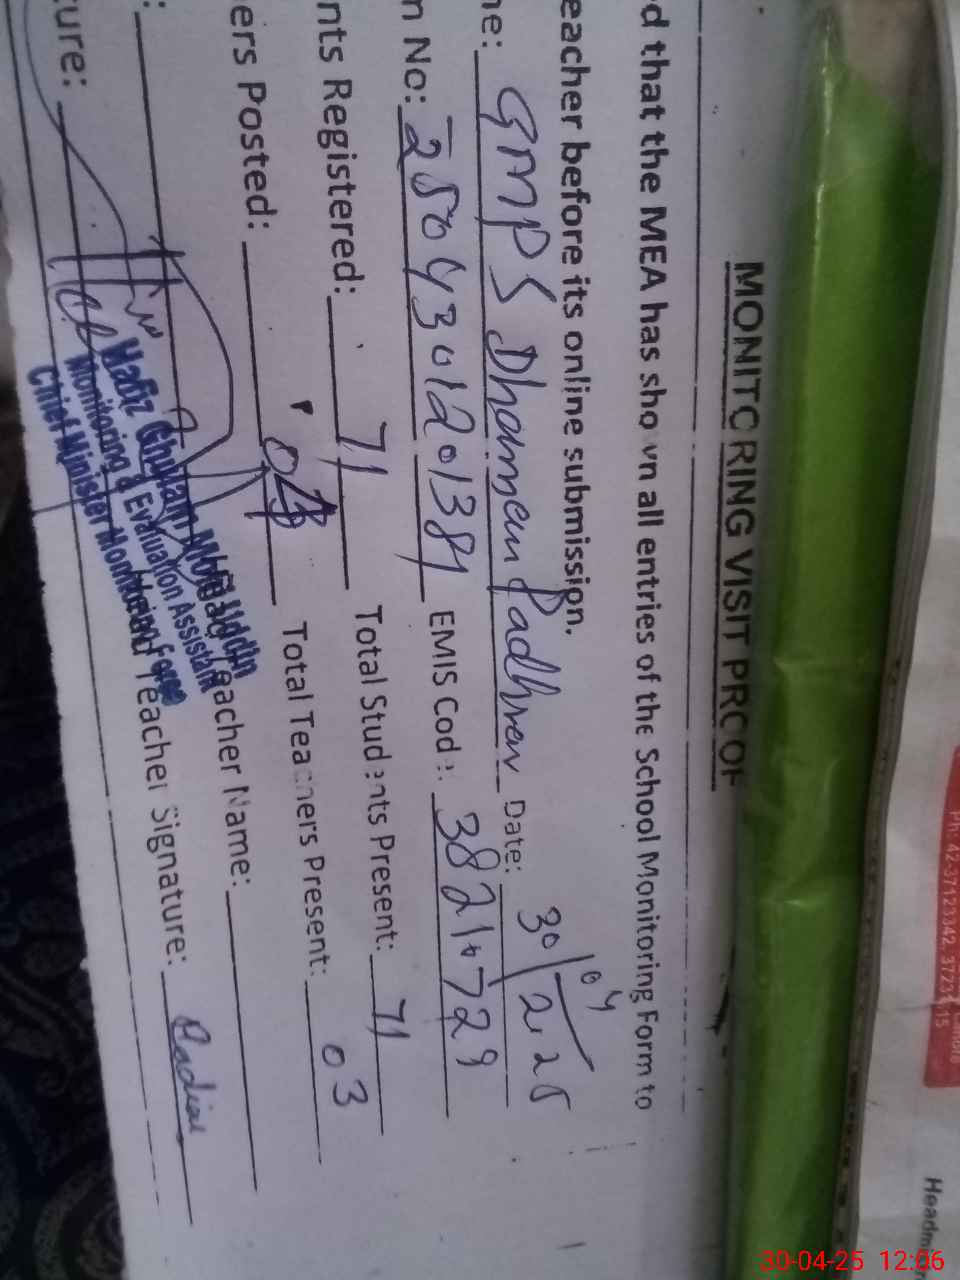 MONITORING VISIT PROOF
d that the MEA has shown all entries of the School Monitoring Form to
eacher before its online submission.
ne: GMPS Dhdmeun Padhren Date: 30/04/2025
n No: 2504301201384 EMIS Code: 38210729
nts Registered: 71 Total Students Present: 71
ers Posted: 04 Total Teachers Present: 03
: Head Teacher Name:
ture: Head Teacher Signature: Radia
Hafiz Ghulam
Monitoring & Evaluation Assistant
Chief Minister Monitoring Force
Ph: 42-37123342, 372
Lahore
Headm
30-04-25 12:06